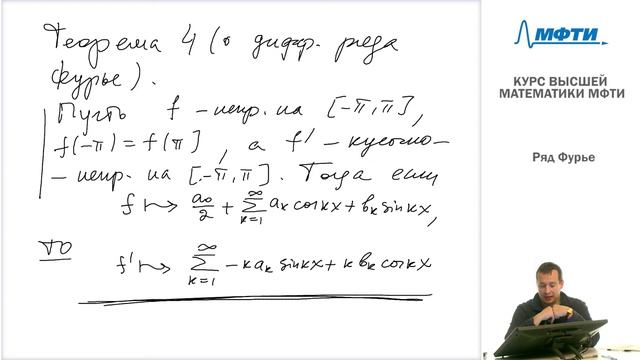 Теорема 4 (о дифф. ряда
Фурье).
Пусть f – непр. на [-π, π],
f(-π) = f(π), а f' – кусочно-
- непр. на [-π, π]. Тогда если
f ↦ a₀/2 + ∑_{k=1}^{∞} aₖ cos kx + bₖ sin kx,
то f' ↦ ∑_{k=1}^{∞} -k aₖ sin kx + k bₖ cos kx
МФТИ
КУРС ВЫСШЕЙ
МАТЕМАТИКИ МФТИ
Ряд Фурье